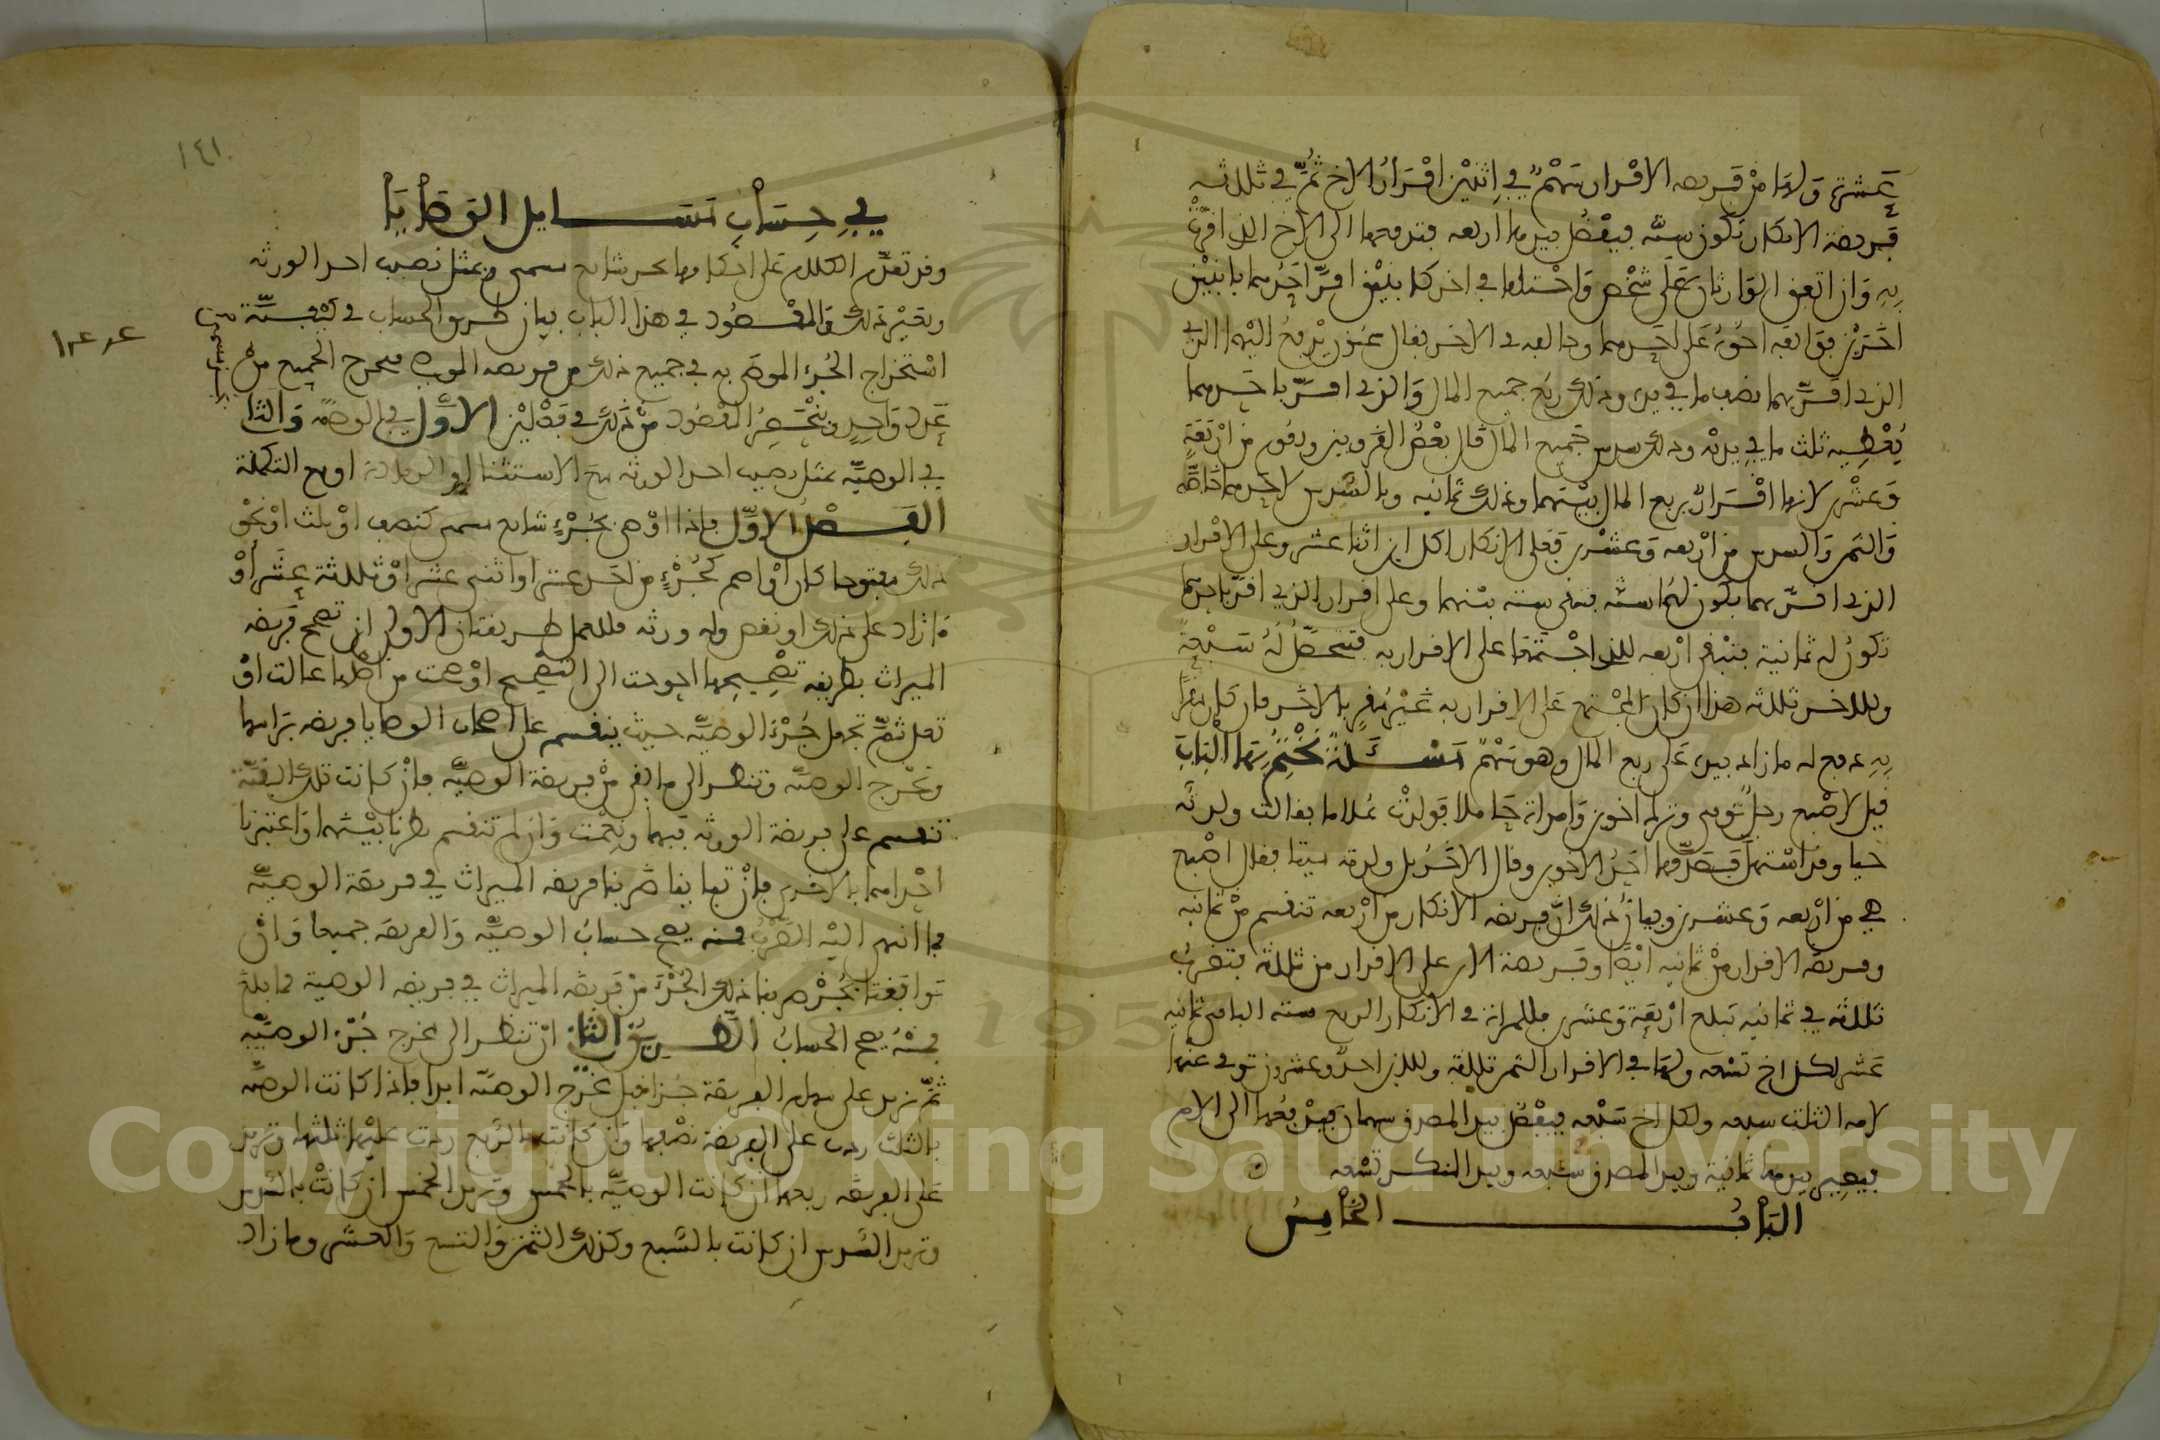 عشرة ولها من فريضة الاقرار سهم في اثنين اقرار الاخ ثم في ثلاثة
فريضة الانكار تكون ستة فيفضل بيدها اربعة فتدفعها الى الاخ الذي اقرت
به وان اتفق الوارثان على شخص واختلفا في اخر كابنين اقر احدهما بابنين
اخرين فوافقه اخوه على احدهما وخالفه في الاخر فقال عنون يدفع اليهما
الذي اقر بهما نصف ما في يده وذلك ربع جميع المال والذي اقر باحدهما
يعطيه ثلث ما في يده وذلك سدس جميع المال قال بعض القرويين وتقوم من اربعة
وعشرين لانها اقرار بربع المال بينهما وذلك ثمانية وبالسدس لاحدهما خاصة
والثمن والسدس من اربعة وعشرين فعلى الانكار لكل ابن اثنا عشر وعلى الاقرار
الذي اقر بهما يكون لهما ستة فتبقى ستة بينهما وعلى اقرار الذي اقر باحدهما
تكون له ثمانية فتبقى اربعة للذي اجتمعا على الاقرار به فتحصل له سبعة
وللاخر ثلاثة هذا ان كان المجتمع على الاقرار به غير مقر بالاخر فان كان مقرا
به دفع له ما زاد بيده على ربع المال وهو سهم مسئلة نختم بها الباب
قيل لاصبغ رجل توفي وترك اخوين وامراة حاملا فولدت غلاما فقالت ولدته
حيا وقد استهل فصدقها احد الاخوين وقال الاخر بل ولدته ميتا فقال اصبغ
هي من اربعة وعشرين وبيان ذلك ان فريضة الانكار من اربعة تنقسم من ثمانية
وفريضة الاقرار من ثمانية ايضا وفريضة الابن على الاقرار من ثلاثة فتضرب
ثلاثة في ثمانية تبلغ اربعة وعشرين فللمراة في الانكار الربع ستة الباقي ثمانية
عشر لكل اخ تسعة ولها في الاقرار الثمن ثلاثة وللابن احد وعشرون توفي عنها
لامه الثلث سبعة ولكل اخ سبعة فيفضل بيد المصدق سهمان فيدفعهما الى الام
فيصير بيدها ثمانية وبيد المصدق سبعة وبيد المنكر تسعة
الباب الخامس
١٤١
في حساب مسايل الوصايا
وقد تقدم الكلام على احكامها بجزء شايع مسمى وبمثل نصيب احد الورثة
وبغير ذلك والمقصود في هذا الباب بيان طريق الحساب في كيفية
استخراج الجزء الموصى به في جميع ذلك من فريضة الموصي فتخرج الجميع من
عدد واحد وينحصر المقصود من ذلك في فصلين الاول في الوصية والثاني
في الوصية بمثل نصيب احد الورثة مع الاستثناء او مع التكملة
الفصل الاول فاذا اوصى بجزء شايع مسمى كنصف او ثلث او نحو
ذلك مفتوحا كان او اصم كجزء من احد عشر او اثني عشر او ثلاثة عشر او
ما زاد على ذلك او نقص وله ورثة فللعمل طريقتان الاولى ان تصحح فريضة
الميراث بطريقة تصحيحها احوجت الى التصحيح او صحت من اصلها عالت او
تعل ثم تجعل جزء الوصية حيث ينقسم على اصحاب الوصايا فريضة براسها
وتخرج الوصية وتنظر الى ما بقي من فريضة الوصية فان كانت تلك البقية
تنقسم على فريضة الورثة فبها ونعمت وان لم تنقسم نظرنا بينهما واعتبرنا
احداهما بالاخرى فان تباينا ضربنا فريضة الميراث في فريضة الوصية
فما انتهى اليه الضرب فمنه يصح حساب الوصية والفريضة جميعا وان
توافقتا بجزء ضربنا ذلك الجزء من فريضة الميراث في فريضة الوصية فما بلغ
فمنه يصح الحساب الطريق الثاني ان تنظر الى مخرج جزء الوصية
ثم تزيد على سهام الفريضة جزءا قبل مخرج الوصية ابدا فاذا كانت الوصية
بالثلث زدت على الفريضة نصفها وان كانت بالربع زدت عليها ثلثها وتزيد
على الفريضة ربعها ان كانت الوصية بالخمس وتزيد الخمس ان كانت بالسدس
وتزيد السدس ان كانت بالسبع وكذلك الثمن والتسع والعشر وما زاد
Copyright © King Saud University
1957